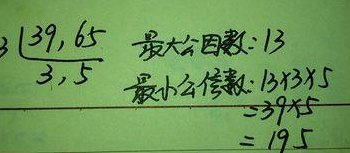 3 39, 65 最大公因数: 13
3, 5
最小公倍数: 13×3×5
=39×5
= 195